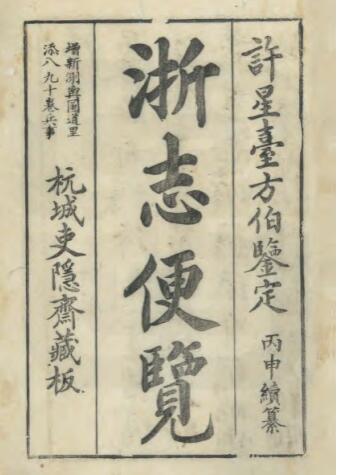 許星臺方伯鑒定 丙申續纂
浙志便覽
增新測輿圖道里
添八九十卷兵事
杭城吏隱齋藏板